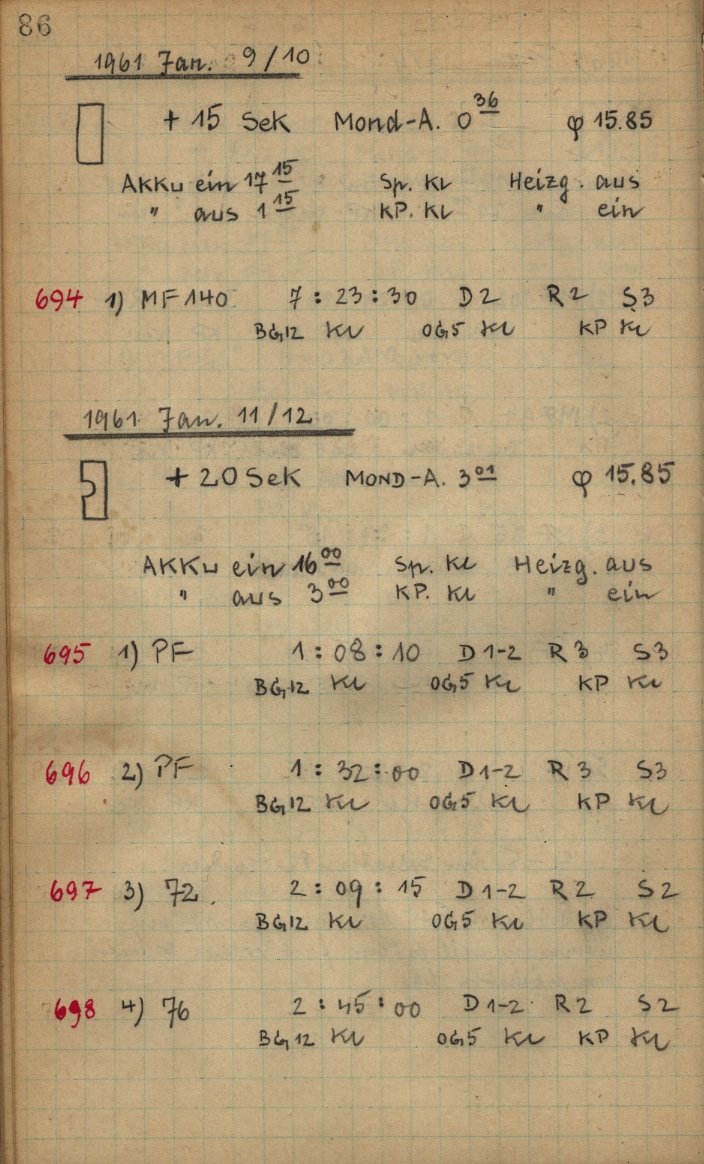 86
1961 Jan. 9/10
+ 15 Sek Mond-A. 0 36 φ 15.85
AKKu ein 17 15 Sp. Kl Heizg. aus
" aus 1 15 KP. Kl " ein
694 1) MF 140 7 : 23 : 30 D2 R2 S3
BG12 Kl OG5 Kl KP Kl
1961 Jan. 11/12
+ 20 Sek MOND-A. 3 01 φ 15.85
AKKu ein 16 00 Sp. Kl Heizg. aus
" aus 3 00 KP. Kl " ein
695 1) PF 1 : 08 : 10 D1-2 R3 S3
BG12 Kl OG5 Kl KP Kl
696 2) PF 1 : 32 : 00 D1-2 R3 S3
BG12 Kl OG5 Kl KP Kl
697 3) 72. 2 : 09 : 15 D1-2 R2 S2
BG12 Kl OG5 Kl KP Kl
698 4) 76 2 : 45 : 00 D1-2 R2 S2
BG12 Kl OG5 Kl KP Kl